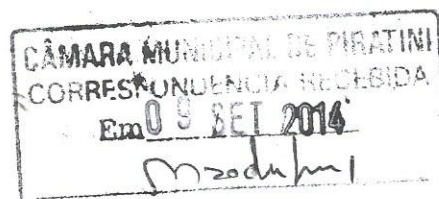 CÂMARA MUNICIPAL DE PIRATINI
CORRESPONDÊNCIA RECEBIDA
Em 09 SET 2014